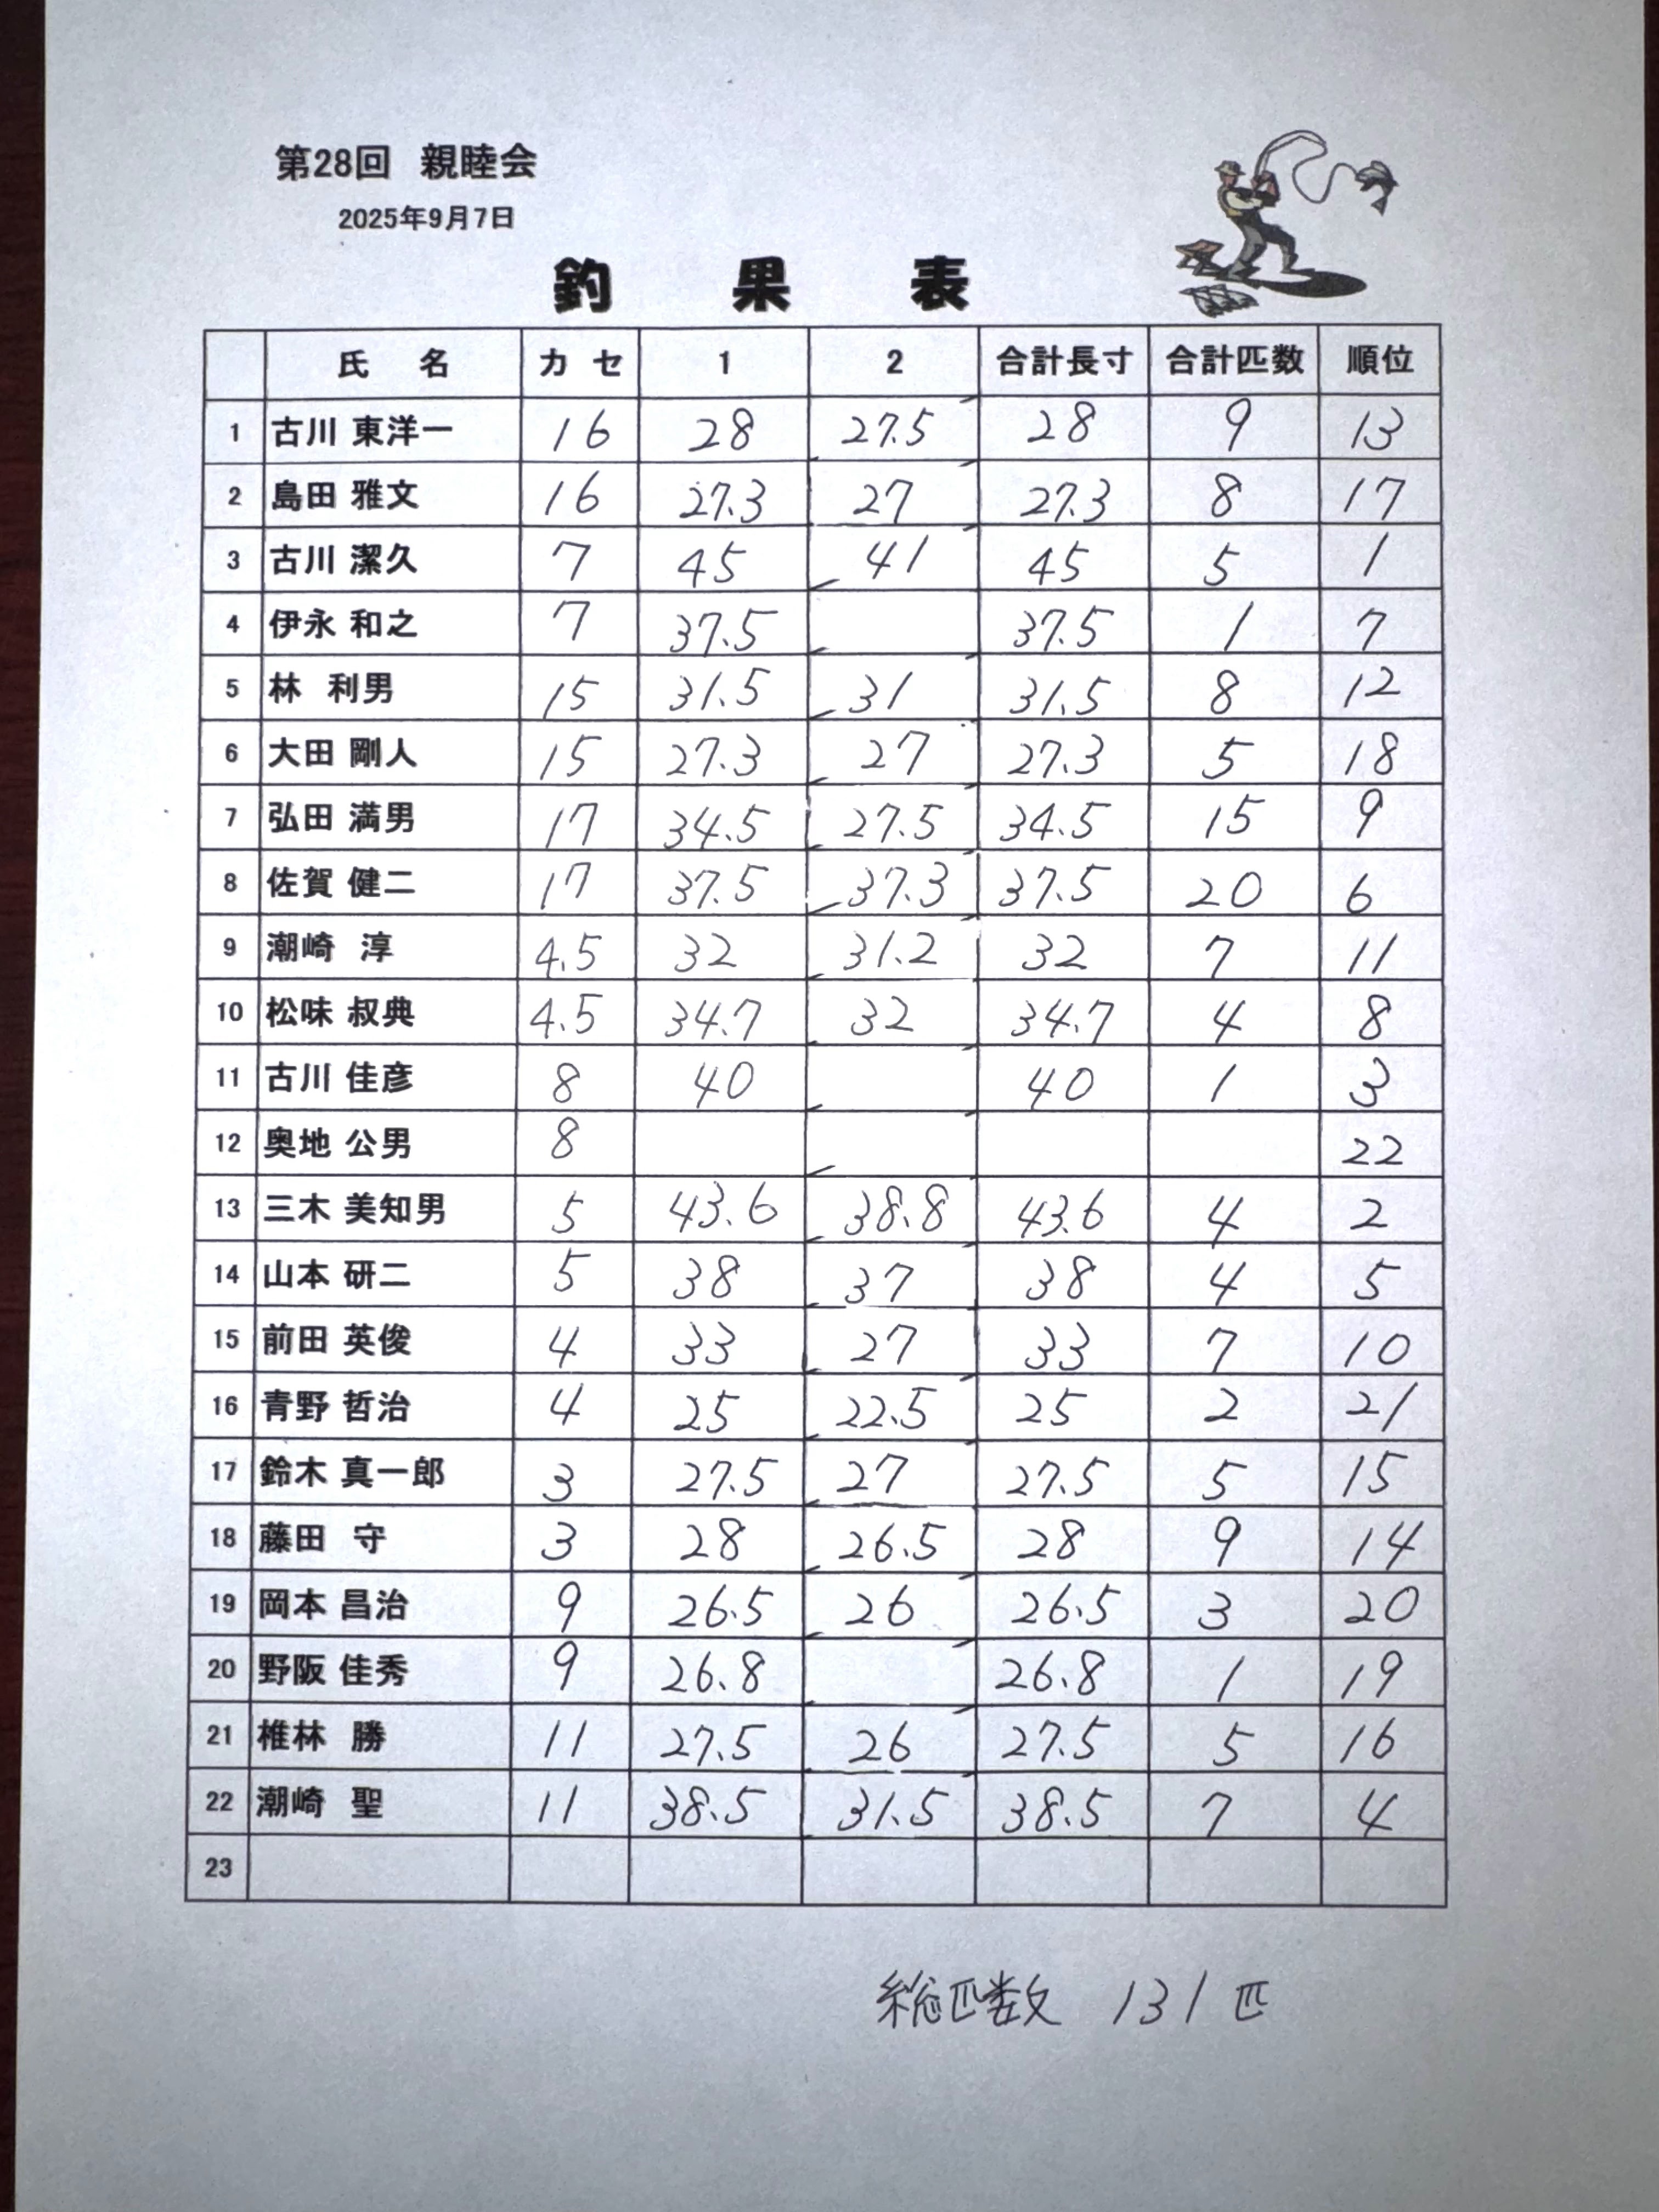 第28回 親睦会
2025年9月7日
釣 果 表
氏 名 カ セ 1 2 合計長寸 合計匹数 順位
1 古川 東洋一 16 28 27.5 28 9 13
2 島田 雅文 16 27.3 27 27.3 8 17
3 古川 潔久 7 45 41 45 5 1
4 伊永 和之 7 37.5 37.5 1 7
5 林 利男 15 31.5 31 31.5 8 12
6 大田 剛人 15 27.3 27 27.3 5 18
7 弘田 満男 17 34.5 27.5 34.5 15 9
8 佐賀 健二 17 37.5 37.3 37.5 20 6
9 潮崎 淳 4.5 32 31.2 32 7 11
10 松味 叔典 4.5 34.7 32 34.7 4 8
11 古川 佳彦 8 40 40 1 3
12 奥地 公男 8 22
13 三木 美知男 5 43.6 38.8 43.6 4 2
14 山本 研二 5 38 37 38 4 5
15 前田 英俊 4 33 27 33 7 10
16 青野 哲治 4 25 22.5 25 2 21
17 鈴木 真一郎 3 27.5 27 27.5 5 15
18 藤田 守 3 28 26.5 28 9 14
19 岡本 昌治 9 26.5 26 26.5 3 20
20 野阪 佳秀 9 26.8 26.8 1 19
21 椎林 勝 11 27.5 26 27.5 5 16
22 潮崎 聖 11 38.5 31.5 38.5 7 4
23
総匹数 131匹